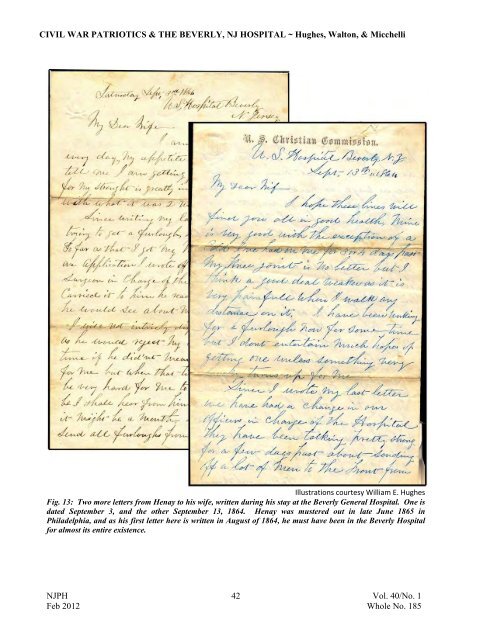 CIVIL WAR PATRIOTICS & THE BEVERLY, NJ HOSPITAL ~ Hughes, Walton, & Micchelli
Saturday Sept 3rd 1864
U.S. Hospital Beverly
N. Jersey
My Dear Wife
every day, my appetite
tell me I am getting
for my strength is greatly
with what it was
Since writing my la
trying to get a furlough
So far as that I got my
an application I wrote of
Surgeon in Charge of the
Carried it to him he
he would see about
I
as he would reject my
time if he did not mean
for me but when that
be very hard for me to
be I shall hear from him
it might be a month
Send all furloughs from
U. S. Christian Commission.
U.S. Hospital Beverly N.J
Sept. 13th 1864
My Dear Wife
I hope these lines will
find you all in good health. Mine
is very good with the exception of a
cold I've had on me for days past
My knee joint is no better but I
think a good deal weaker as it is
very painfull when I walk any
distance on it. I have been looking
for a furlough now for some time
but I dont entertain much hopes of
getting one unless something very
turns up for me
Since I wrote my last letter
we have had a change in our
officers in charge of the Hospital
they have been talking pretty strong
for a few days past about sending
off a lot of men to the front from
Illustrations courtesy William E. Hughes
Fig. 13: Two more letters from Henay to his wife, written during his stay at the Beverly General Hospital. One is
dated September 3, and the other September 13, 1864. Henay was mustered out in late June 1865 in
Philadelphia, and as his first letter here is written in August of 1864, he must have been in the Beverly Hospital
for almost its entire existence.
NJPH 42 Vol. 40/No. 1
Feb 2012 Whole No. 185